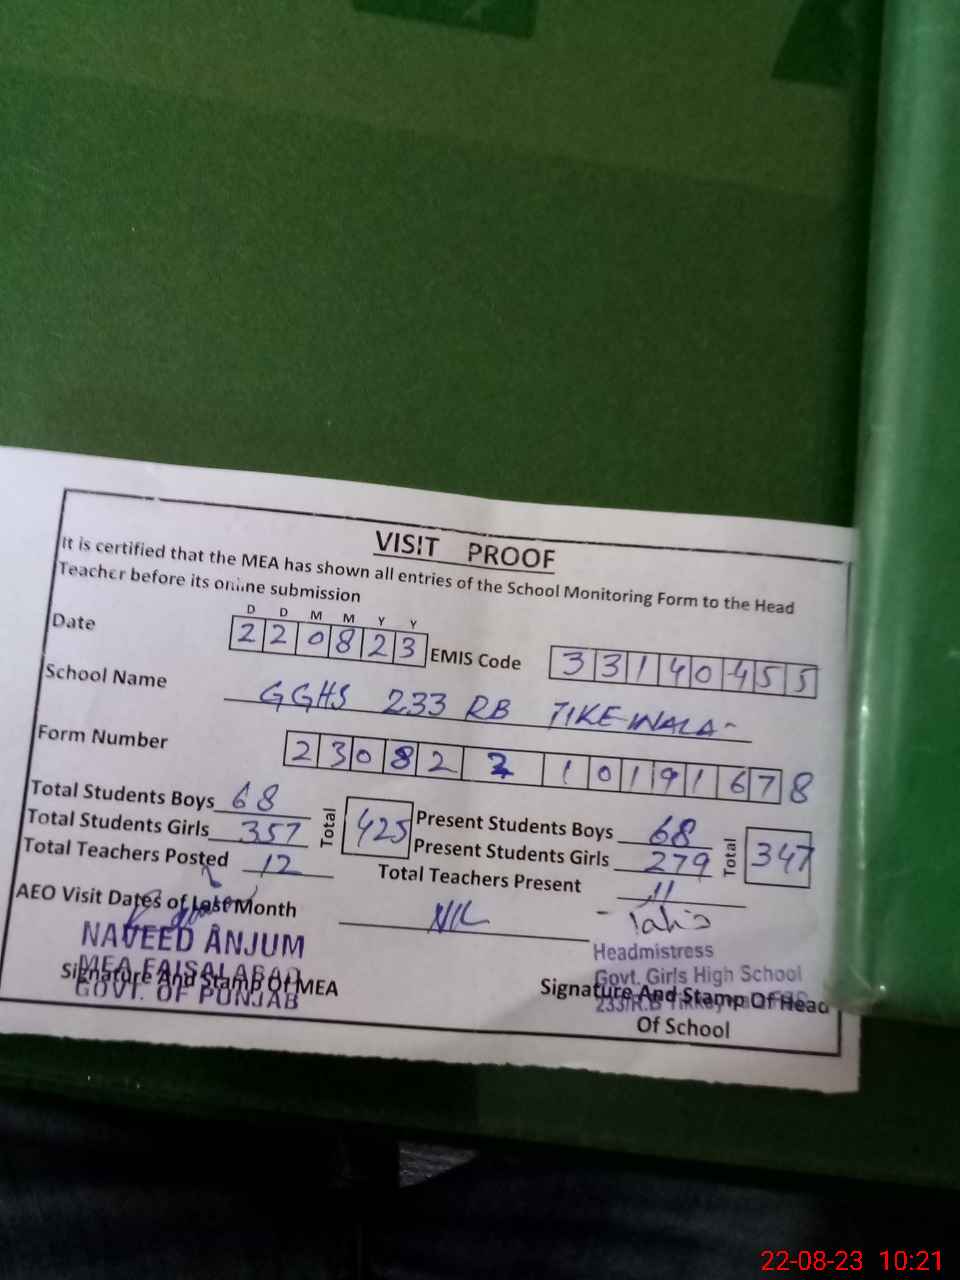 VISIT PROOF
It is certified that the MEA has shown all entries of the School Monitoring Form to the Head
Teacher before its online submission
D D M M Y Y
Date 2 2 0 8 2 3 EMIS Code 3 3 1 4 0 4 5 5
School Name GGHS 233 RB TIKE-WALA
Form Number 2 3 0 8 2 2 1 0 1 9 1 6 7 8
Total Students Boys 68 Total 425 Present Students Boys 68 Total 347
Total Students Girls 357 Present Students Girls 279
Total Teachers Posted 12 Total Teachers Present 11
AEO Visit Dates of Last Month NIL
NAVEED ANJUM
MEA FAISALABAD
GOVT. OF PUNJAB
Signature And Stamp Of MEA
Headmistress
Govt. Girls High School
233/R.B
Signature And Stamp Of Head
Of School
22-08-23 10:21